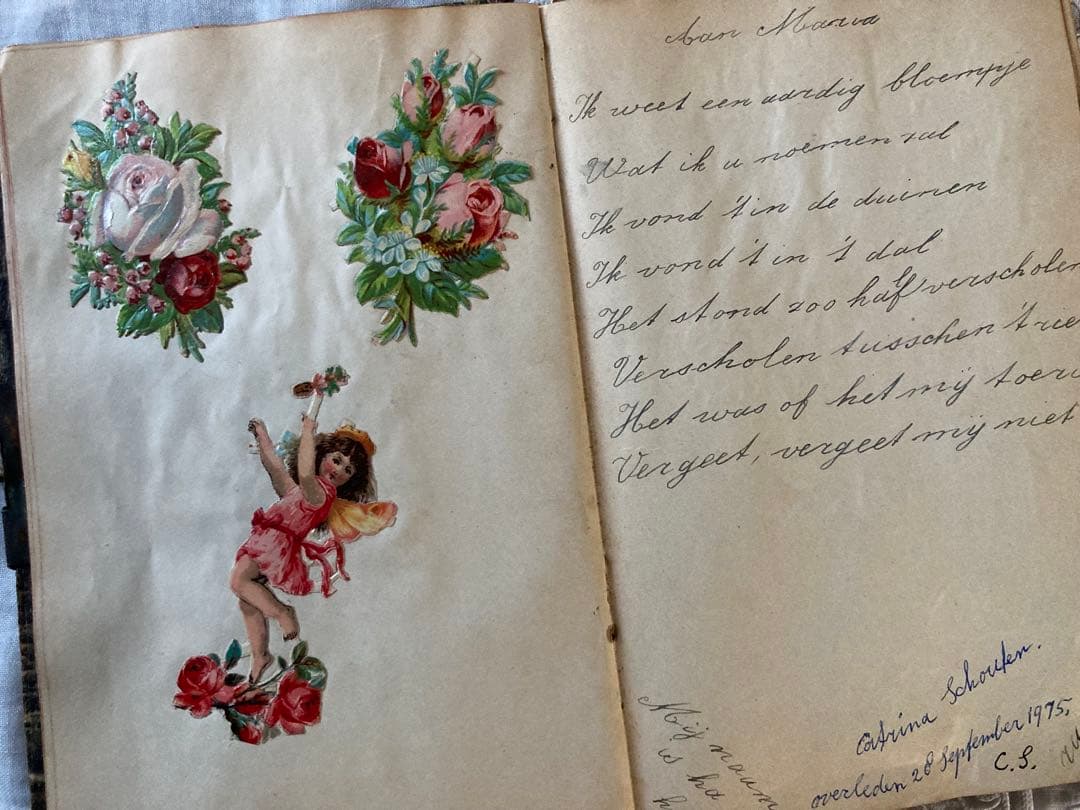 Aan Maria
Ik weet een aardig bloempje
Wat ik u noemen zal
Ik vond 't in de duinen
Ik vond 't in 't dal
Het stond zoo half verscholen
Verscholen tusschen 't
Het was of het mij
Vergeet, vergeet mij niet
Mij naam
is
Catrina Schouten.
overleden 28 September 1975,
C.S.